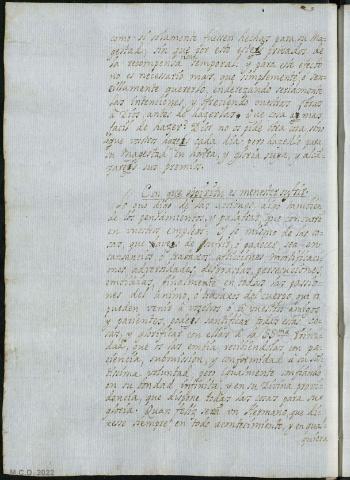 como si solamente fuessen hechas para su Ma-
gestad, sin que por esto esteis privados de
la recompensa temporal. y para este efecto
no es necessario mas, que simplemente o sen-
cillamente quererlo, enderezando seriamente
las intenciones, y ofreciendo vuestras obras
a Dios, antes de hacerlas. Que cosa ay mas
facil de hacer? Dios no os pide otra cosa, sino
que vosotros hazeis cada dia: pero hazello para
su Magestad, en honra, y gloria suya, y alcan-
zareis sus premios.
Con que es menester
Lo que digo de las acciones, digo tambien
de los pensamientos, y palabras, que
en vuestros empleos. Y lo mismo de las co-
sas, que aveis de sufrir, o padecer, sea en
cansancios, o trabajos, aflicciones, mortificacio-
nes, adversidades, desgracias, persecuciones,
embidias, finalmente en todas las passio-
nes del animo, o trabajos del cuerpo, que os
pueden venir a vosotros, o a vuestros amigos
y parientes, podeis santificar todas estas co-
sas, y glorificar con ellas a la SSma. Trini-
dad, que os las embia, recibiendolas con pa-
ciencia, submission, y conformidad a su San-
tissima voluntad, pero igualmente confiando
en su bondad infinita, y en su Divina provi-
dencia, que dispone todas las cosas para su
gloria. Quan feliz será un Hermano, que di-
xesse siempre, en todo acontecimiento, y en qual
quiera
M.C.D. 2022